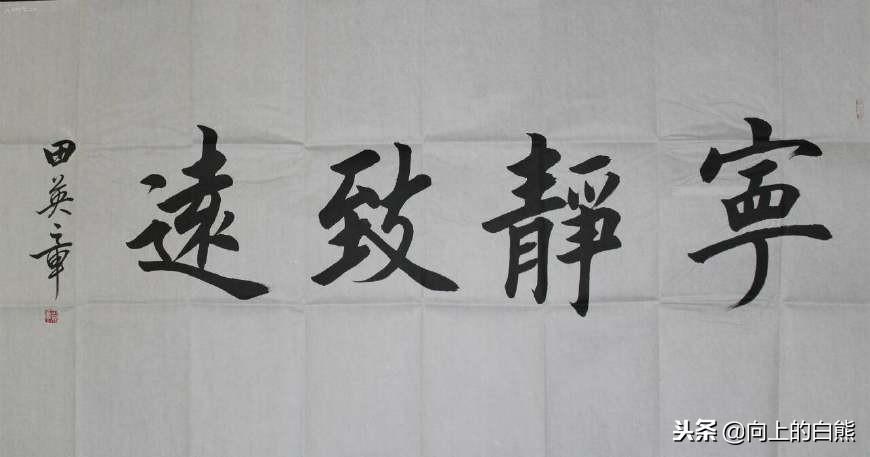 寧靜致遠
田英章
头条 @向上的白熊